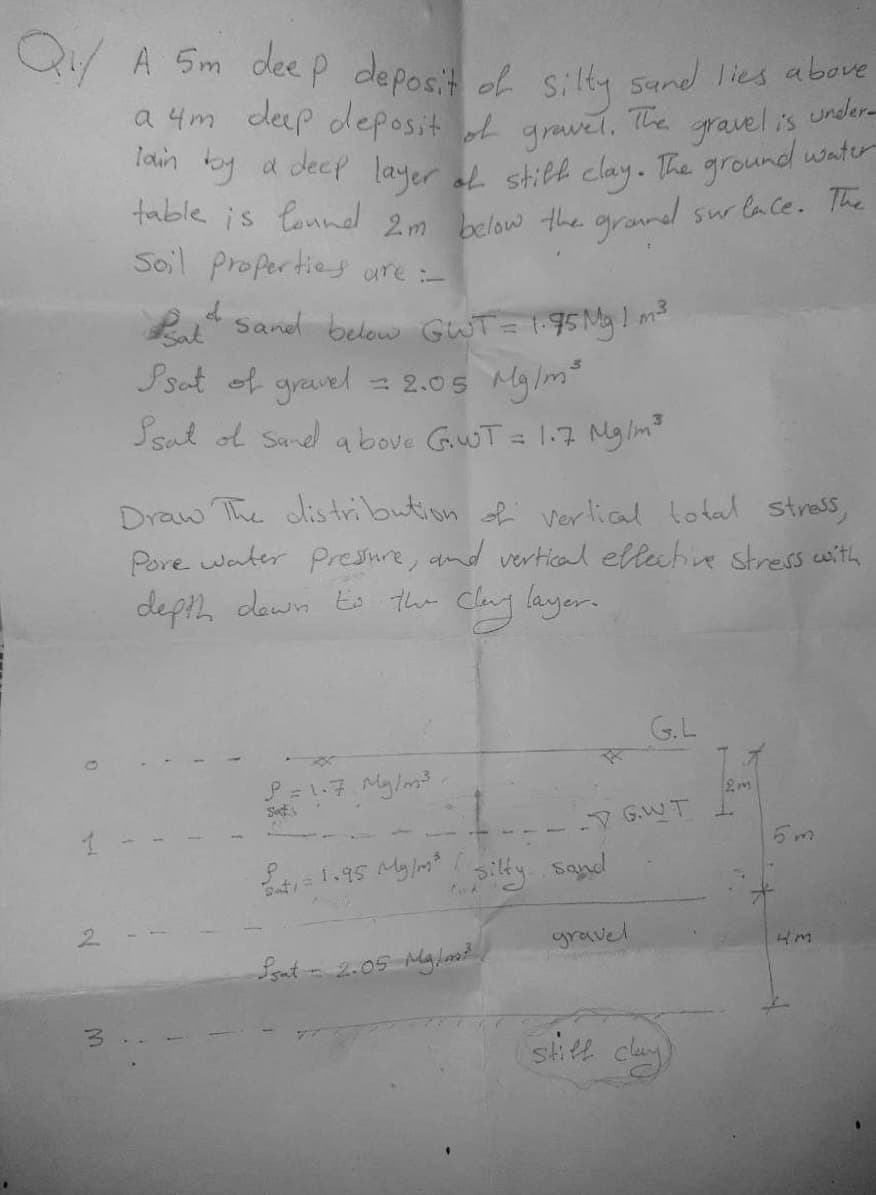 Q1/ A 5m deep deposit of silty sand lies above
a 4m deep deposit of gravel. The gravel is under-
lain by a deep layer of stiff clay. The ground water
table is found 2m below the ground surface. The
soil properties are :-
ρsat of sand below GWT = 1.95 Mg/m³
ρsat of gravel = 2.05 Mg/m³
ρsat of sand above G.WT = 1.7 Mg/m³
Draw The distribution of vertical total stress,
Pore water Pressure, and vertical effective stress with
depth down to the clay layer.
G.L
0
ρsat = 1.7 Mg/m³
2m
G.W.T
1
5m
ρsat1 = 1.95 Mg/m³ silty sand
2
gravel
4m
ρsat = 2.05 Mg/m³
3
stiff clay